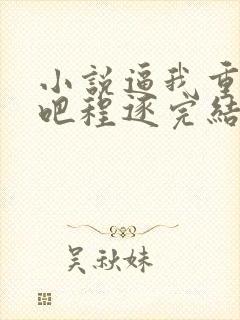 小說逼我重
吧程逐完結
吴秋妹